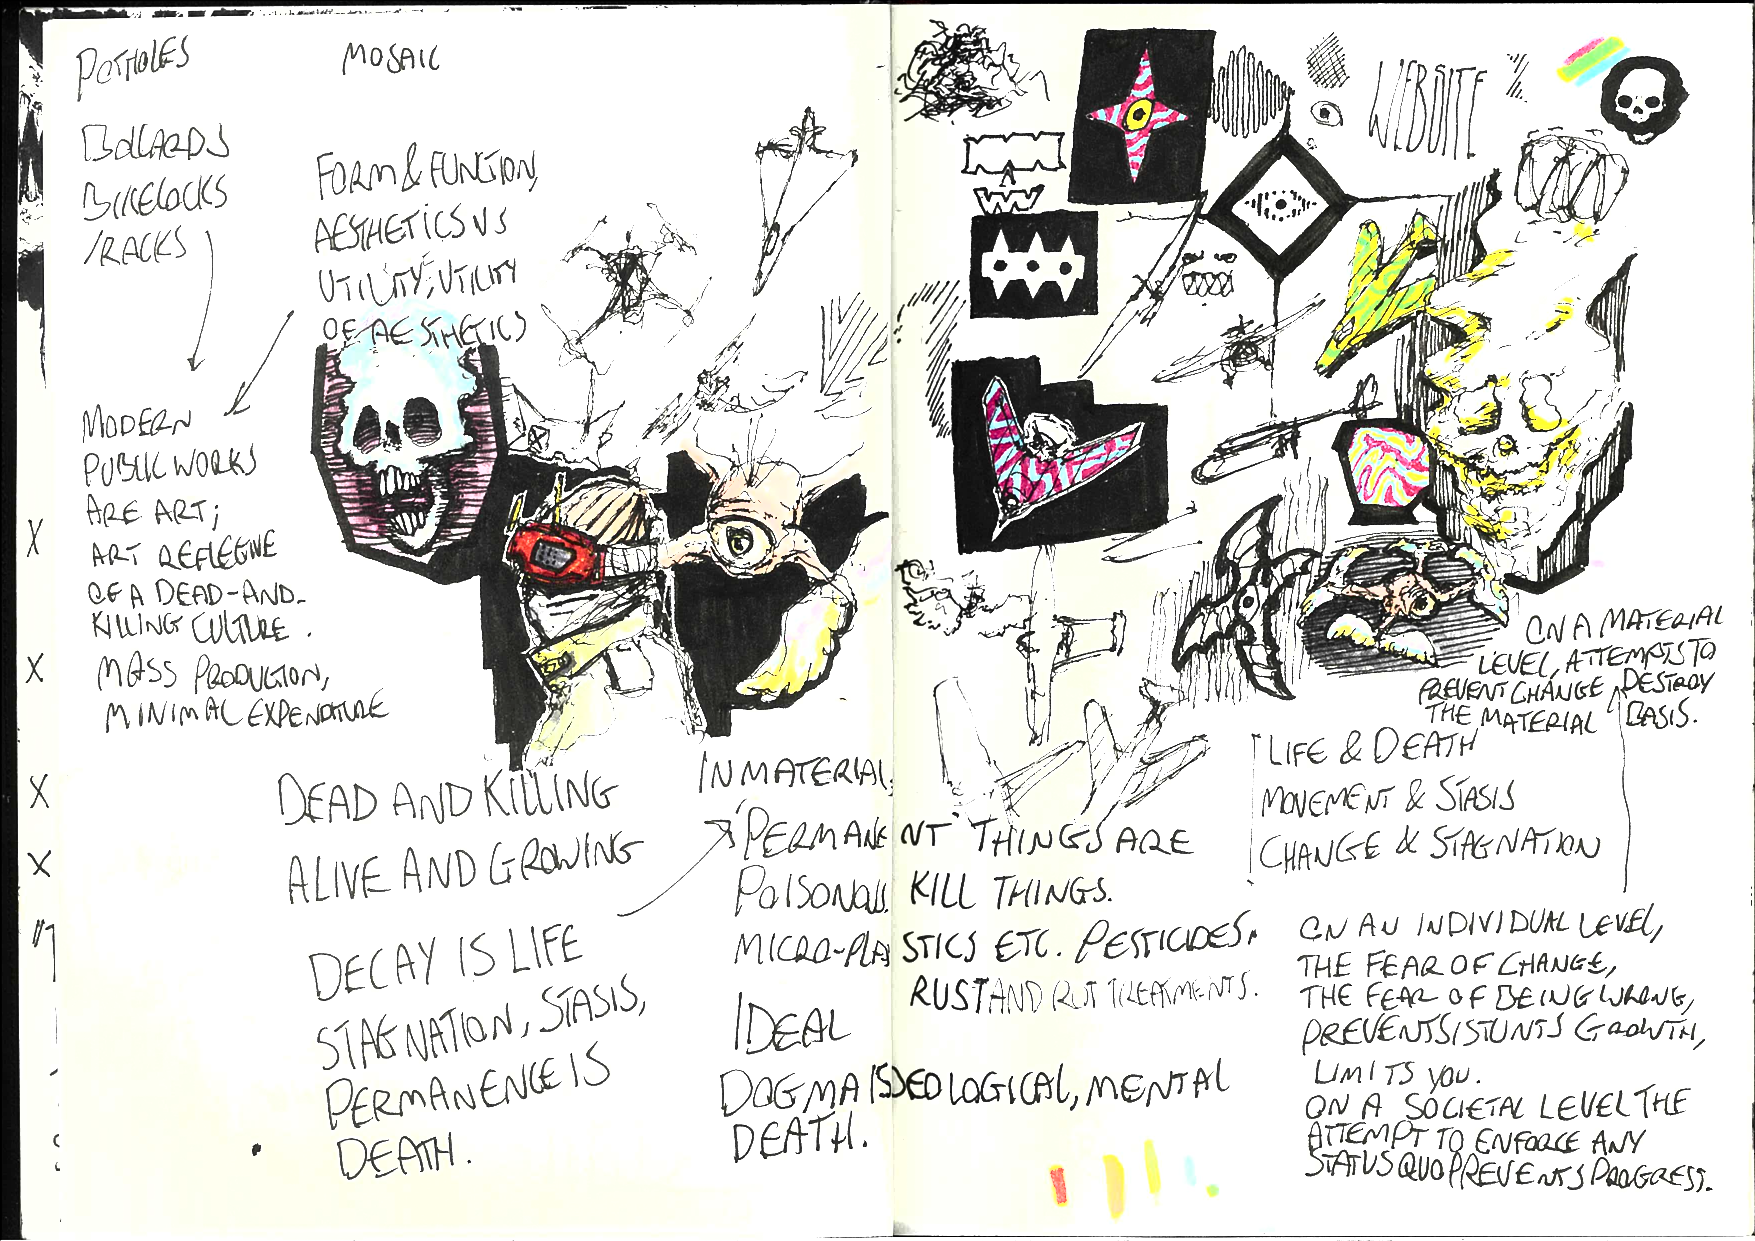 POTHOLES
MOSAIC
BOLLARDS
BIKELOCKS
/RACKS
FORM & FUNCTION,
AESTHETICS VS
UTILITY; UTILITY
OF AESTHETICS
MODERN
PUBLIC WORKS
ARE ART;
ART REFLECTIVE
OF A DEAD-AND-
KILLING CULTURE.
MASS PRODUCTION,
MINIMAL EXPENDITURE
X
X
X
X
DEAD AND KILLING
ALIVE AND GROWING
DECAY IS LIFE
STAGNATION, STASIS,
PERMANENCE IS
DEATH.
IN MATERIAL,
'PERMANENT' THINGS ARE
POISONOUS. KILL THINGS.
MICRO-PLASTICS ETC. PESTICIDES.
RUST AND ROT TREATMENTS.
IDEAL
DOGMA IS IDEOLOGICAL, MENTAL
DEATH.
WEBSITE
ON A MATERIAL
LEVEL, ATTEMPTS TO
PREVENT CHANGE DESTROY
THE MATERIAL BASIS.
LIFE & DEATH
MOVEMENT & STASIS
CHANGE & STAGNATION
ON AN INDIVIDUAL LEVEL,
THE FEAR OF CHANGE,
THE FEAR OF BEING WRONG,
PREVENTS/STUNTS GROWTH,
LIMITS YOU.
ON A SOCIETAL LEVEL THE
ATTEMPT TO ENFORCE ANY
STATUS QUO PREVENTS PROGRESS.